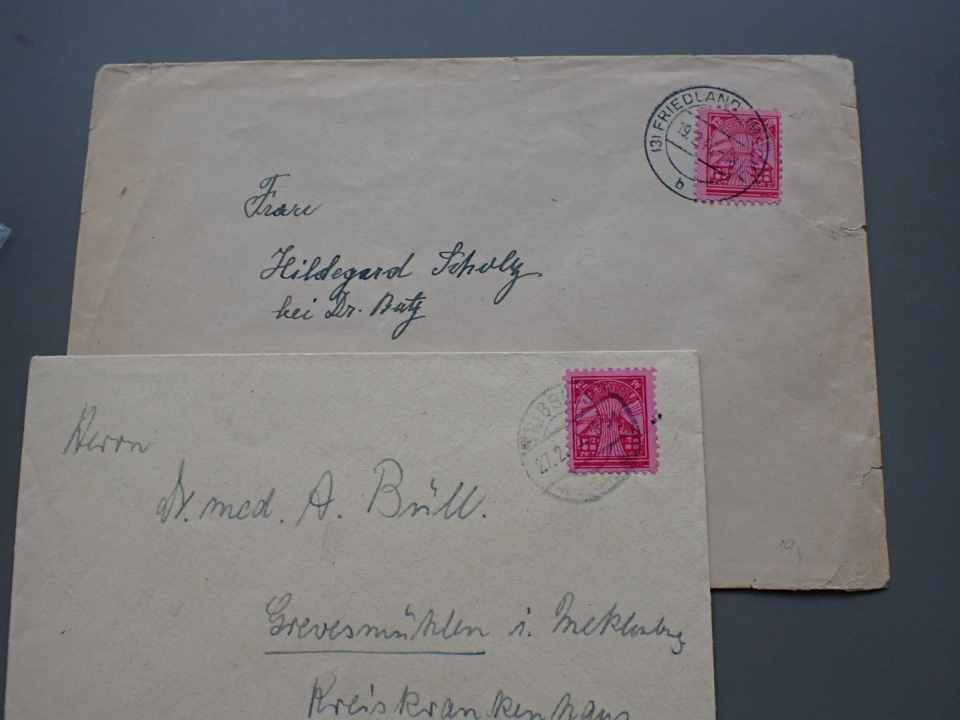 (3) FRIEDLAND
19.2.
b
Frau
Hildegard Scholz
bei Dr. Butz
27.2.
Herrn
Dr. med. A. Büll.
Grevesmühlen i. Meklenburg
Kreiskrankenhaus